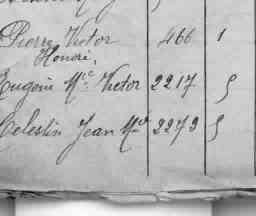 Pierre Victor 466 1
Honoré,
Eugène Mie Victor 2217 5
Celestin Jean Mie 2273 5